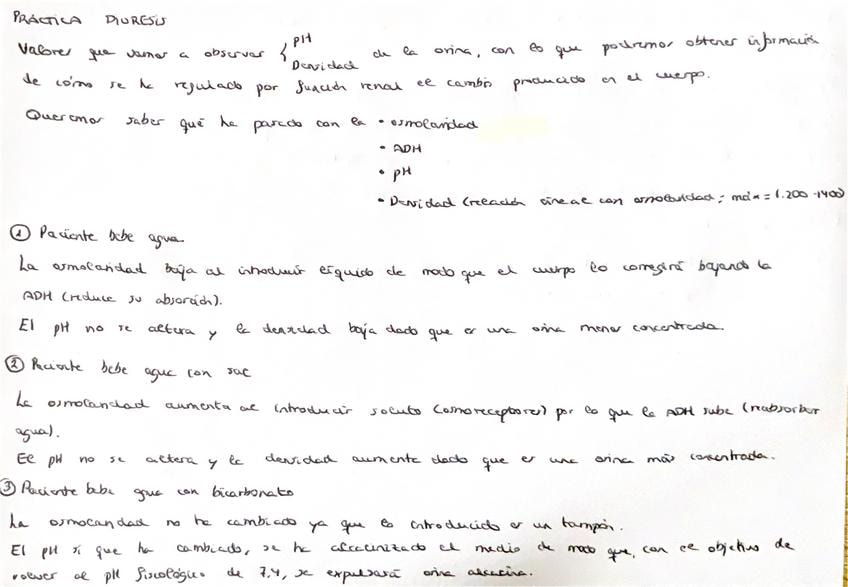 PRÁCTICA DIURESIS
Valores que vamos a observar { pH
Densidad de la orina, con lo que podremos obtener información
de cómo se ha regulado por función renal el cambio producido en el cuerpo.
Queremos saber qué ha pasado con la • osmolaridad
• ADH
• pH
• Densidad (relación lineal con osmolaridad; máx = 1.200-1400)
① Paciente bebe agua
La osmolaridad baja al introducir líquido de modo que el cuerpo lo corregirá bajando la
ADH (reduce su absorción).
El pH no se altera y la densidad baja dado que es una orina menos concentrada.
② Paciente bebe agua con sal
La osmolaridad aumenta al introducir soluto (osmoreceptores) por lo que la ADH sube (reabsorber
agua).
El pH no se altera y la densidad aumenta dado que es una orina más concentrada.
③ Paciente bebe agua con bicarbonato
La osmolaridad no ha cambiado ya que lo introducido es un tampón.
El pH sí que ha cambiado, se ha alcalinizado el medio de modo que, con el objetivo de
volver al pH fisiológico de 7,4, se expulsará orina alcalina.